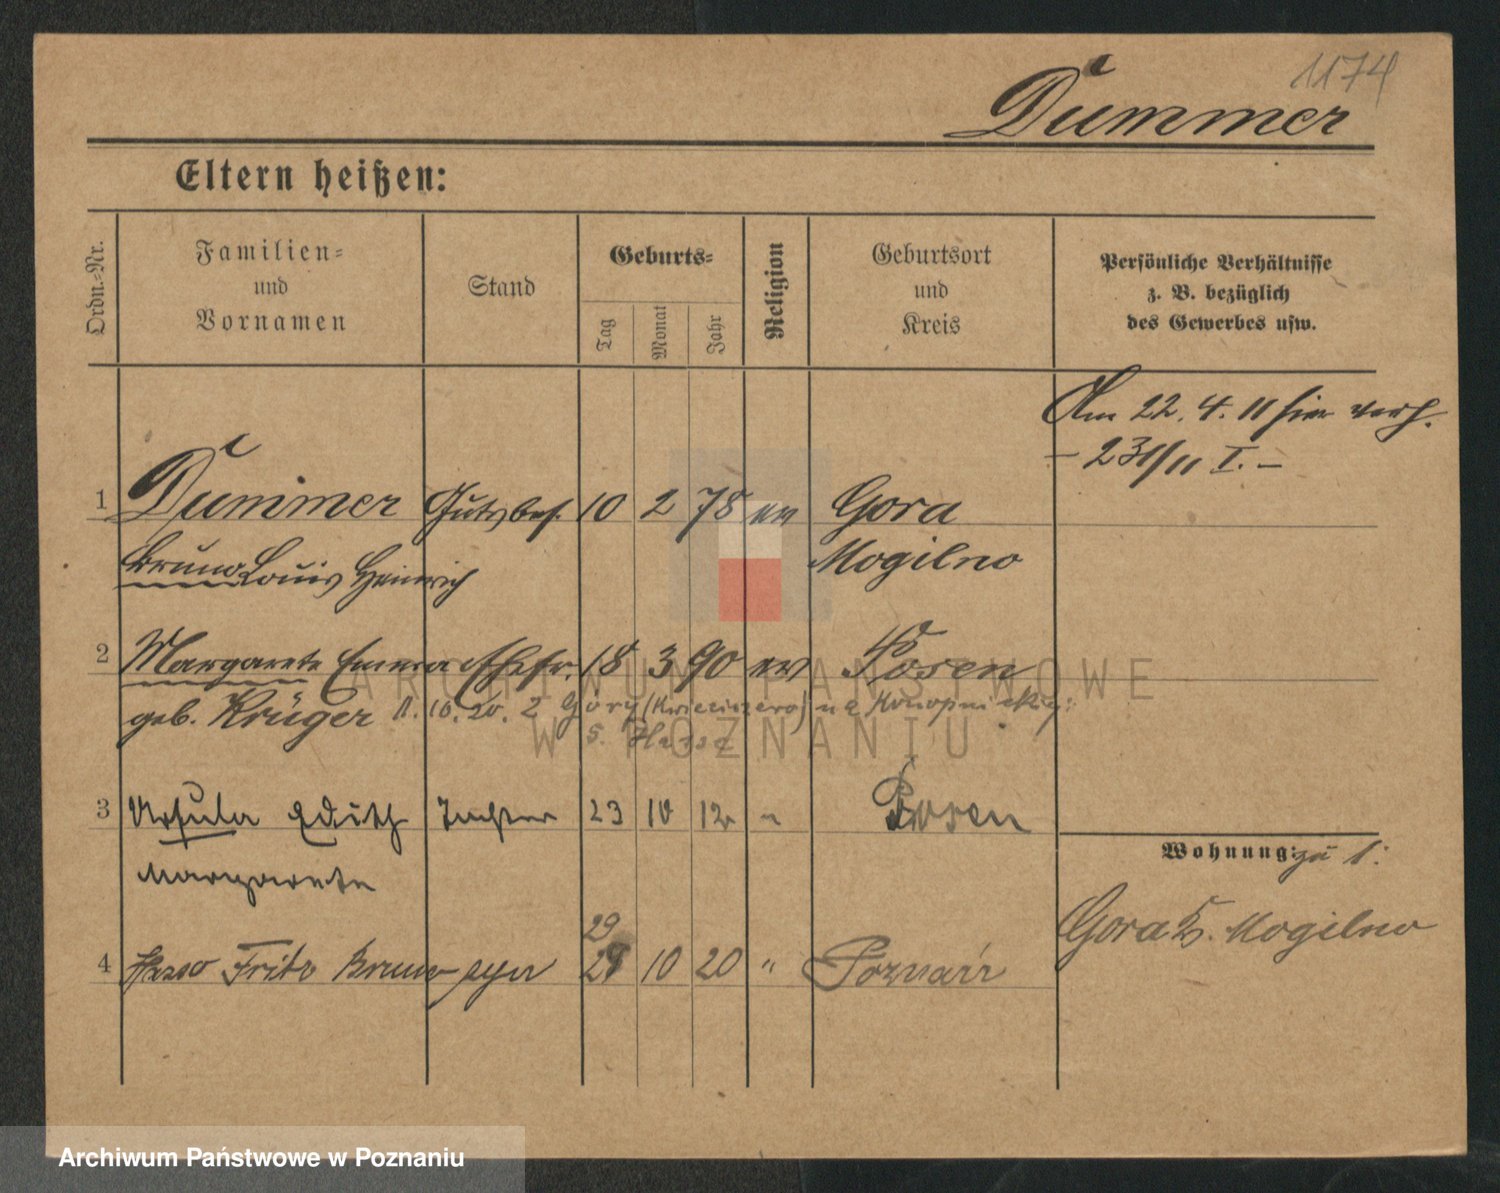 1174
Dummer
Eltern heißen:
Ordn.-Nr.
Familien-
und
Vornamen
Stand
Geburts-
Tag
Monat
Jahr
Religion
Geburtsort
und
Kreis
Persönliche Verhältnisse
z. B. bezüglich
des Gewerbes usw.
Am 22. 4. 11 hier verh.
– 231/11 I. –
1 Dummer Gutsbes. 10 2 78 ev Gora
Bruno Louis Heinrich Mogilno
2 Margarete Emma Ehefr. 18 3 90 ev Posen
geb. Krüger 11. 10. 20. z Góry na
3 Ursula Edith Tochter 23 10 12 " Posen
Margarete
29
4 Fritz Bruno syn 28 10 20 " Poznań
Wohnung: zu 1:
Gora K. Mogilno
ARCHIWUM PAŃSTWOWE
W POZNANIU
Archiwum Państwowe w Poznaniu